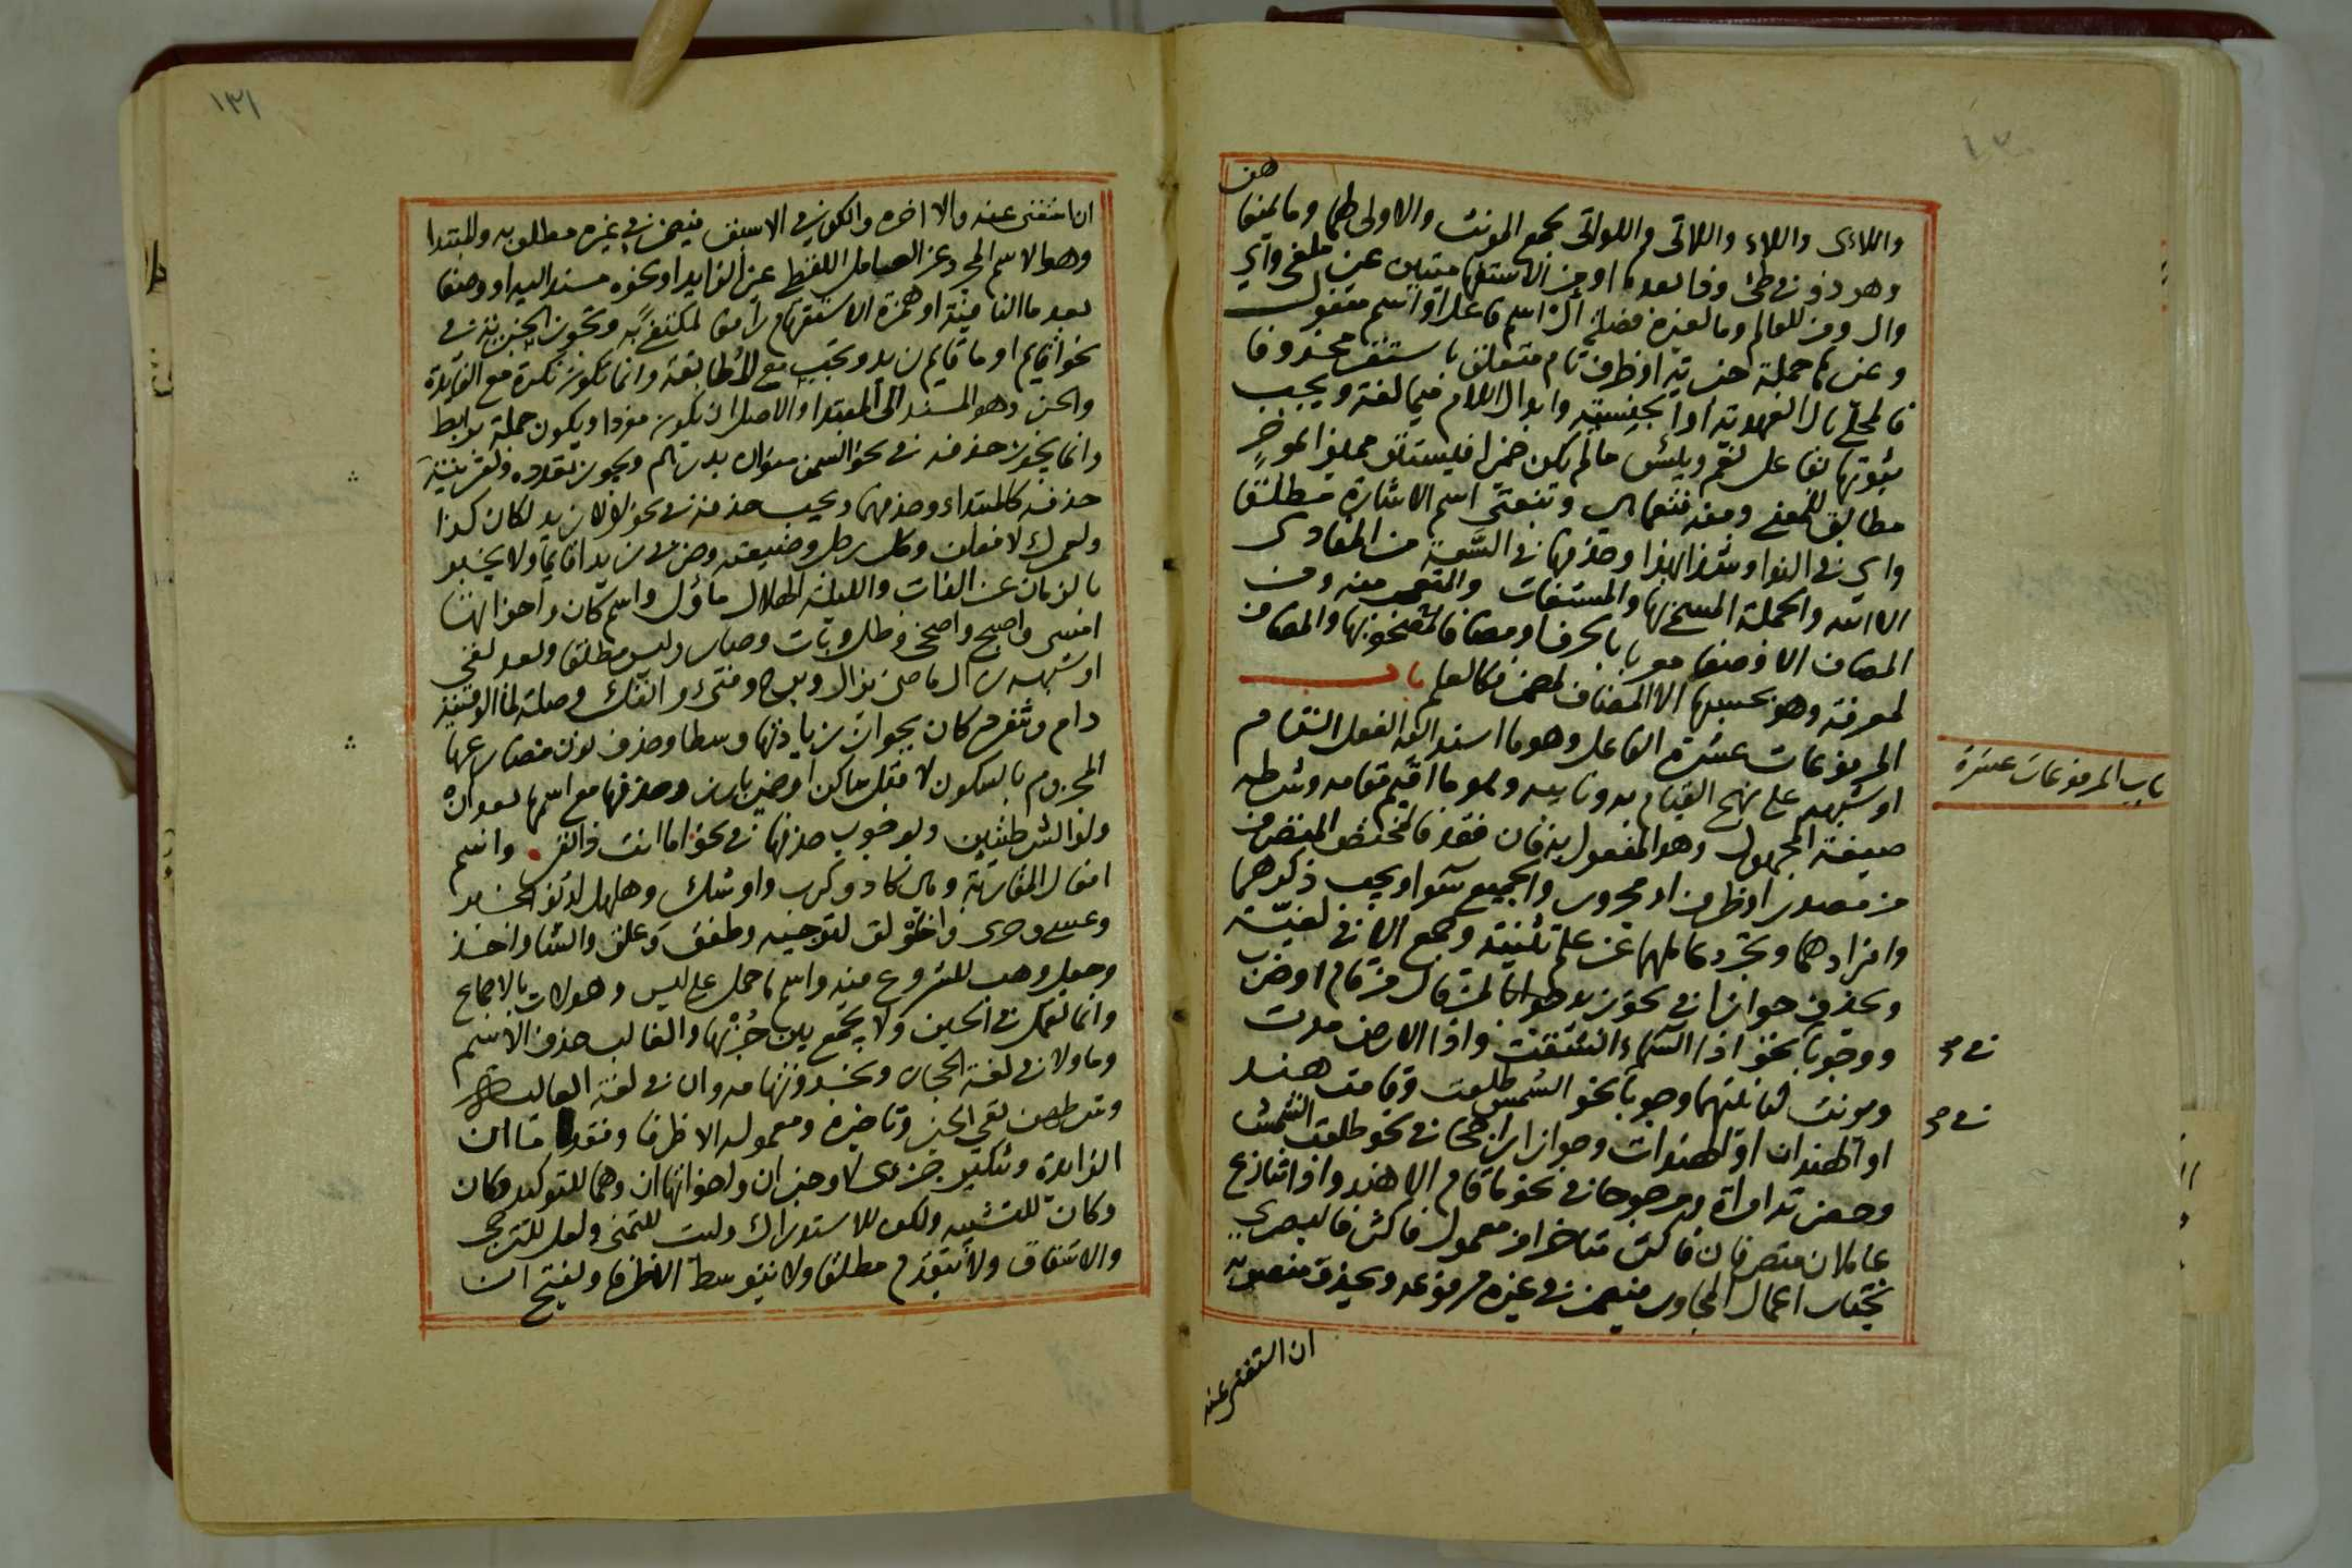 واللاءى واللاء واللاتى واللواتى لجمع المونث والاولى لهما وما بمعنا
هن
وهو ذو في طى وذا بعد ما او من الاستفها ميتين غير ملغى واي
وال ومن للعالم وما لغيره فصلة ال اسم فاعل او اسم مفعول
وغيرها جملة خبرية او ظرف تام متعلق باستقر محذوفا
فالمحلى بال العهدية او الجنسية وابدال اللام ميما لغة ويجب
ثبوتها فى فاعل نعم وبئس ما لم يكن ضميرا فيستتر مميزا الموخر
مطابق للمعنى ومنه فنعما هى وتنعتى اسم الاشارة مطلقا
واي في الندا وشذ ايهذا وحذفها في السعة من المنادى
الا الله والجملة المسمى بها والمستغاث والمتعجب منه ومن
المضاف الا وصفا معربا بالحرف او مضافا لمقترن بها والمضاف
لمعرفة وهو بحسبها الا المضاف لمضمر فكالعلم باب
المرفوعات عشرة الفاعل وهو ما اسند اليه الفعل التام
او شبهه على نهج القيام به ونايبه وهو ما اقيم مقامه وشرطه
صيغة المجهول وهو المفعول به فان فقد فالمختص المتصرف
من مصدر او ظرف او مجرور والجميع سواء ويجب ذكرهما
وافرادهما وتجرد عاملهما عن علم تثنية وجمع الا في لغية
ويحذف جوازا في نحو زيد جوابا لمن قال من قام او ضرب
ووجوبا بنحو اذا السماء انشقت واذا الارض مدت
ومونث لتانيثهما وجوبا نحو الشمس طلعت وقامت هند
او الهندان او الهندات وجوازا راجحا في نحو طلعت الشمس
وحضرت امراة ومرجوحا في نحو ما قام الا هند واذا تنازع
عاملان متصرفان فاكثر متاخرا من معمول فاكثر فالبصري
يختار اعمال المجاور فيضمر في غيره مرفوعه ويحذف منصوبه
ان استغنى عنه
باب المرفوعات عشرة
١٣١
ان استغنى عنه والا اخره والكوفي الاسبق فيضمر في غيره مطلوبه والمبتدا
وهو الاسم المجرد عن العامل اللفظي غير الزايد او نحوه مسندا اليه او وصفا
بعد ما النافية او همزة الاستفهام رافعا لمكتفى به وتجوز الخبرية في
نحو اقايم او ما قايم زيد وتجب مع المطابقة وانما تكون نكرة مع الفايدة
والخبر وهو المسند الى المبتدا والاصل ان يكون مفردا ويكون جملة برابط
وانما يجوز حذفه في نحو السمن منوان بدرهم ويجوز تعدده ولقرينة
حذفه كالمبتداء وحذفهما ويجب حذفه في نحو لولا زيد لكان كذا
ولعمرك لافعلن وكل رجل وضيعته وضربي زيدا قايما ولا يخبر
بالزمان عن الذات والليلة الهلال ماؤل واسم كان واخواتها
امسى واصبح واضحى وظل وبات وصار وليس مطلقا وبعد نفي
او شبهه زال ماضي يزال وبرح وفتئ وانفك وصلة لما الوقتية
دام وتنفرد كان بجواز زيادتها وسطا وحذف نون مضارعها
المجزوم بالسكون لا قبل ساكن او ضمير بارز وحذفها مع اسمها بعد ان
ولو الشرطيتين وبوجوب حذفها في نحو اما انت ذا نفر واسم
افعال المقاربة وهي كاد وكرب واوشك وهلهل لدنو الخبر
وعسى وحرى واخلولق لترجيه وطفق وعلق وانشا واخذ
وجعل وهب للشروع فيه واسم ما حمل على ليس وهو لات بالاجماع
وانما تعمل في الحين ولا يجمع بين جزئيها والغالب حذف الاسم
وما ولا في لغة الحجاز وان في لغة العالية
وشرطهن نفي الخبر وتاخيره ومعموله الا ظرفا وفقد ما ان
الزايدة وتنكير جزءى لا وخبر ان واخواتها ان وهما للتوكيد وكان
وكان للتشبيه ولكن للاستدراك وليت للتمني ولعل للترجي
والاشفاق ولا يتقدم مطلقا ولا يتوسط الا ظرفا ويفتح ان